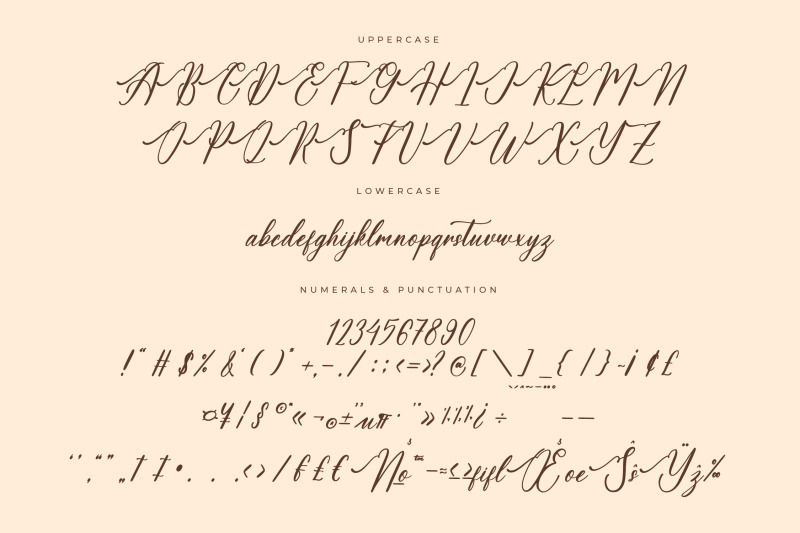 UPPERCASE
ABCDEFGHIJKLMN
OPQRSTUVWXYZ
LOWERCASE
abcdefghijklmnopqrstuvwxyz
NUMERALS & PUNCTUATION
1234567890
!"#$%&'()*+,-./:;<=>?@[\]_{|}~¡¢£
¤¥¦§©ª«¬®±´µ¶·¨»¼½¾¿÷ ––
‘’‚“”„†‡•...‹›/₣₤€№™−≈≤≥fiflŒœŠšŸž‰